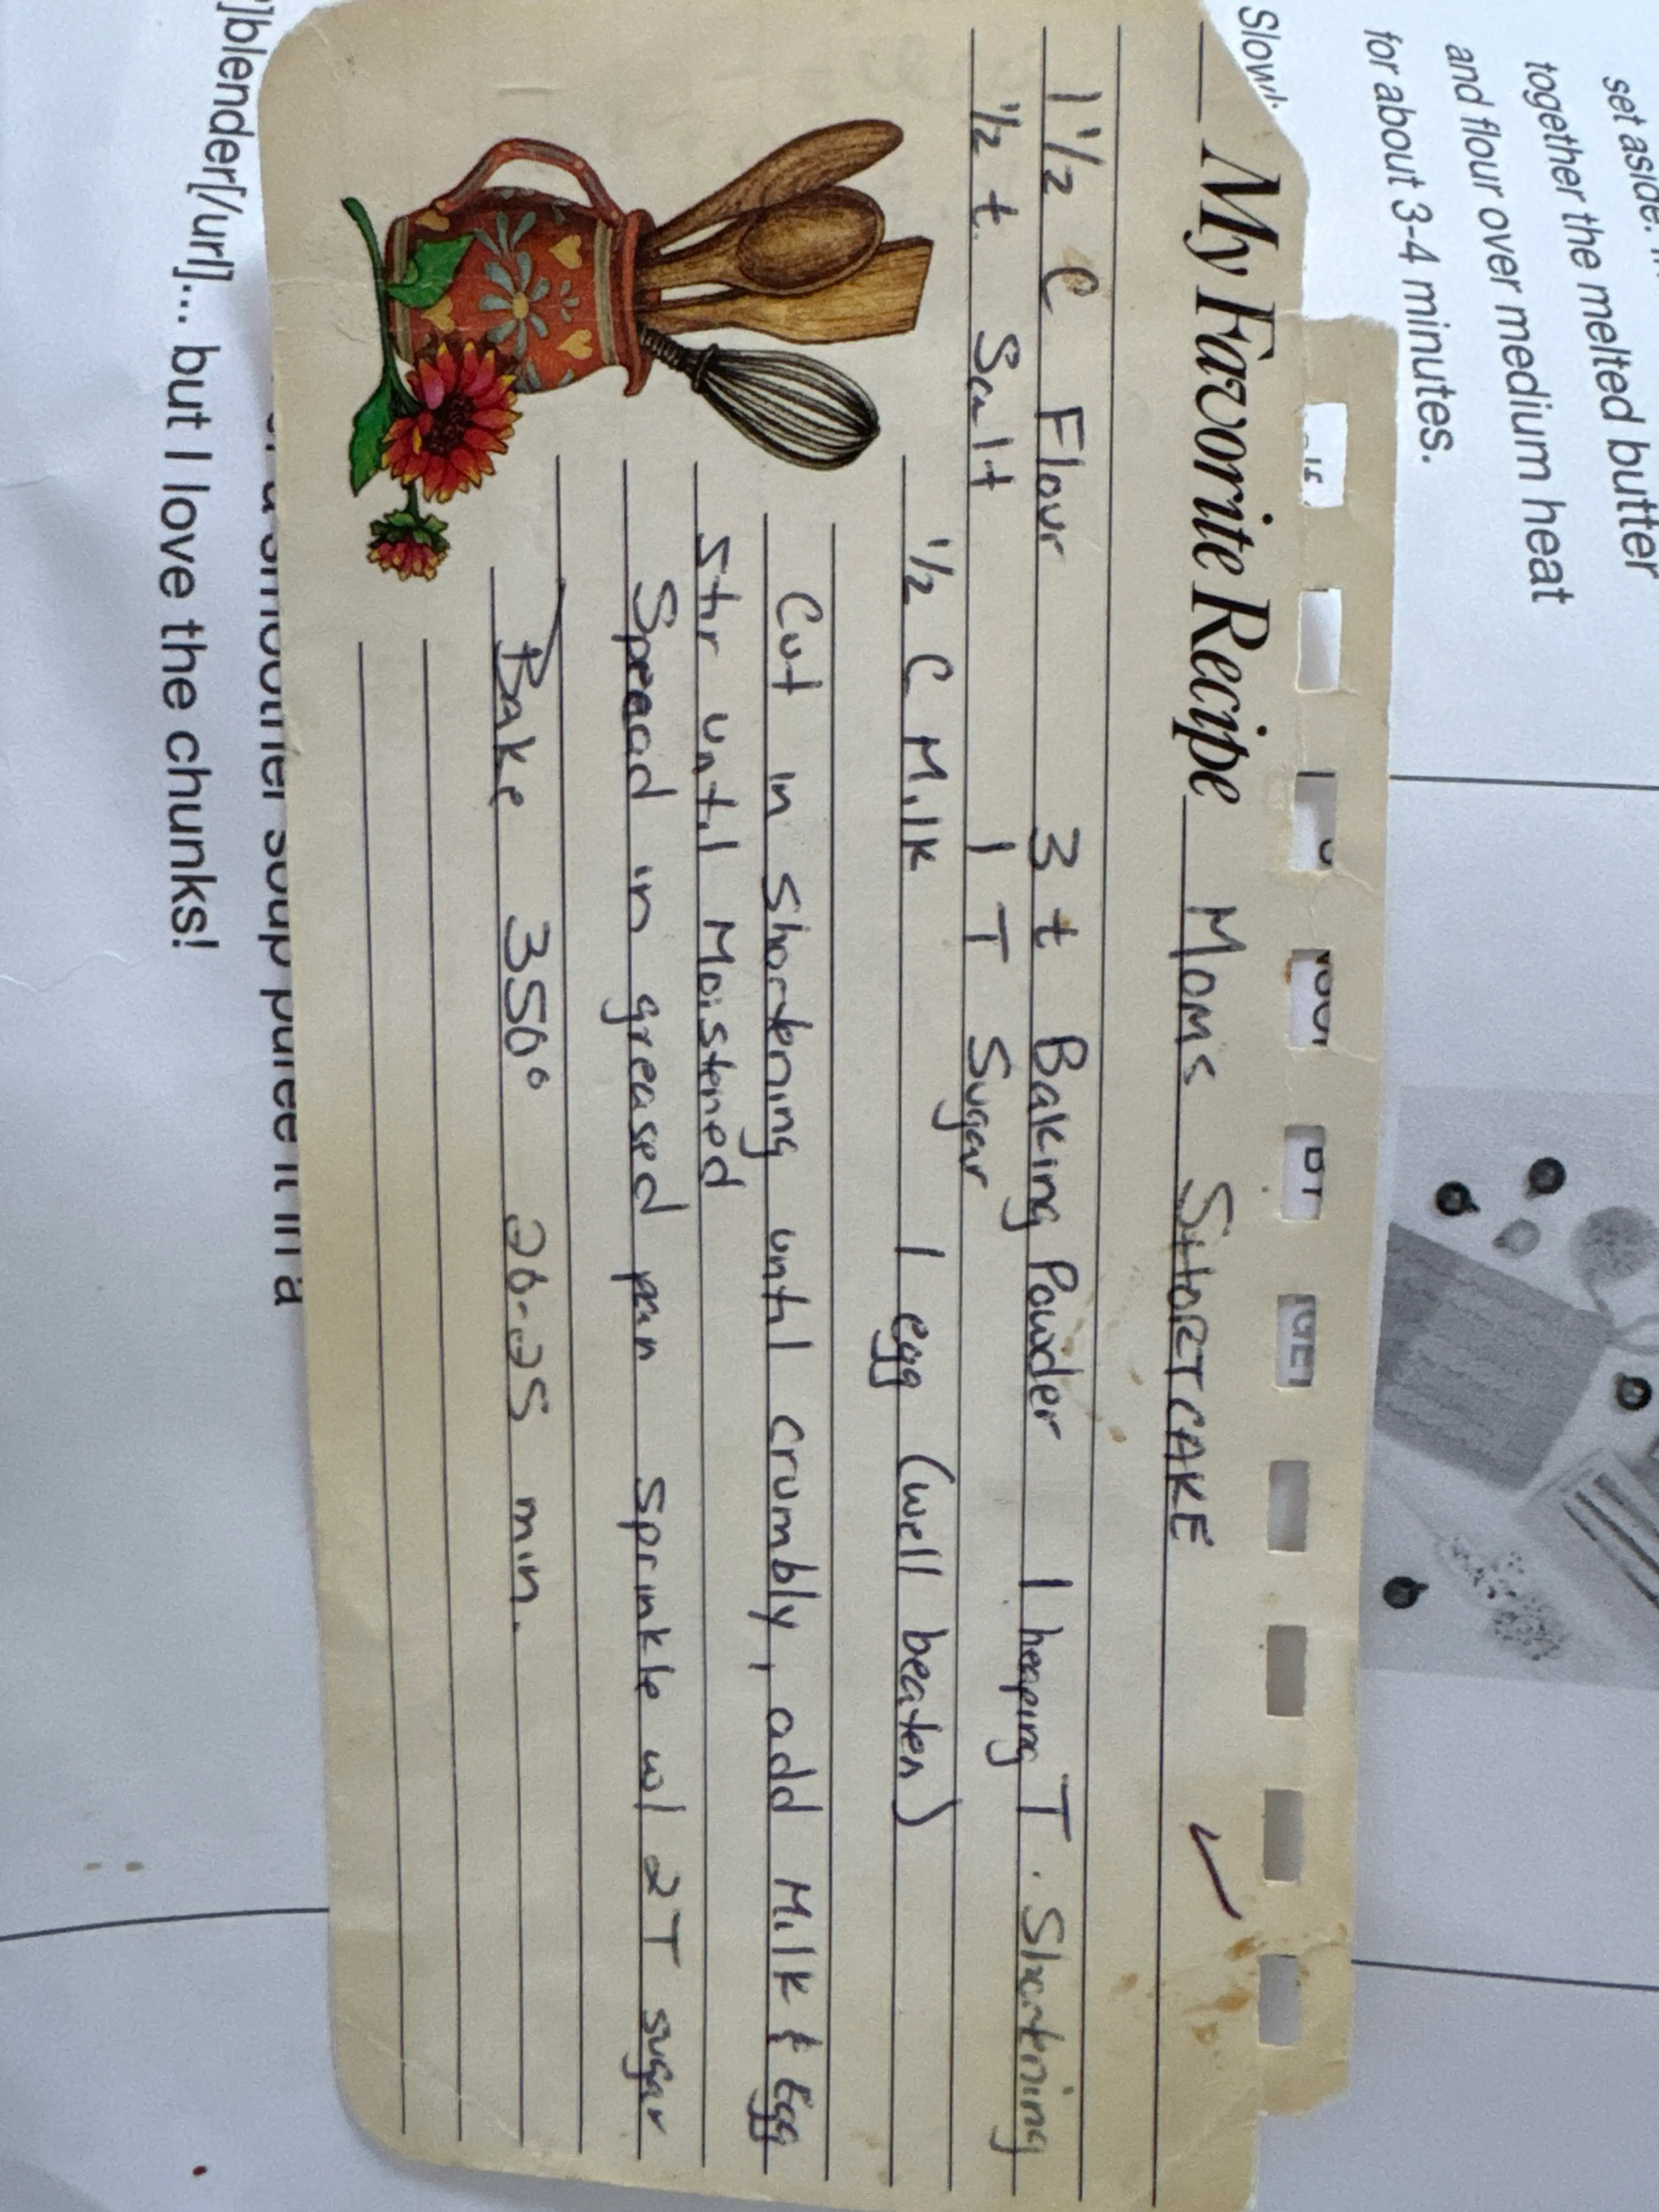 set aside.
together the melted butter
and flour over medium heat
for about 3-4 minutes.
My Favorite Recipe Moms SHORTCAKE
1 1/2 C Flour 3 t Baking Powder 1 heaping T. Shortening
1/2 t Salt 1 T Sugar
1/2 C Milk 1 egg (well beaten)
Cut in shortening until crumbly, add Milk & Egg
Stir until Moistened
Spread in greased pan Sprinkle w/ 2T sugar
Bake 350° 20-25 min.
smoother soup puree it in a
]blender[/url]... but I love the chunks!